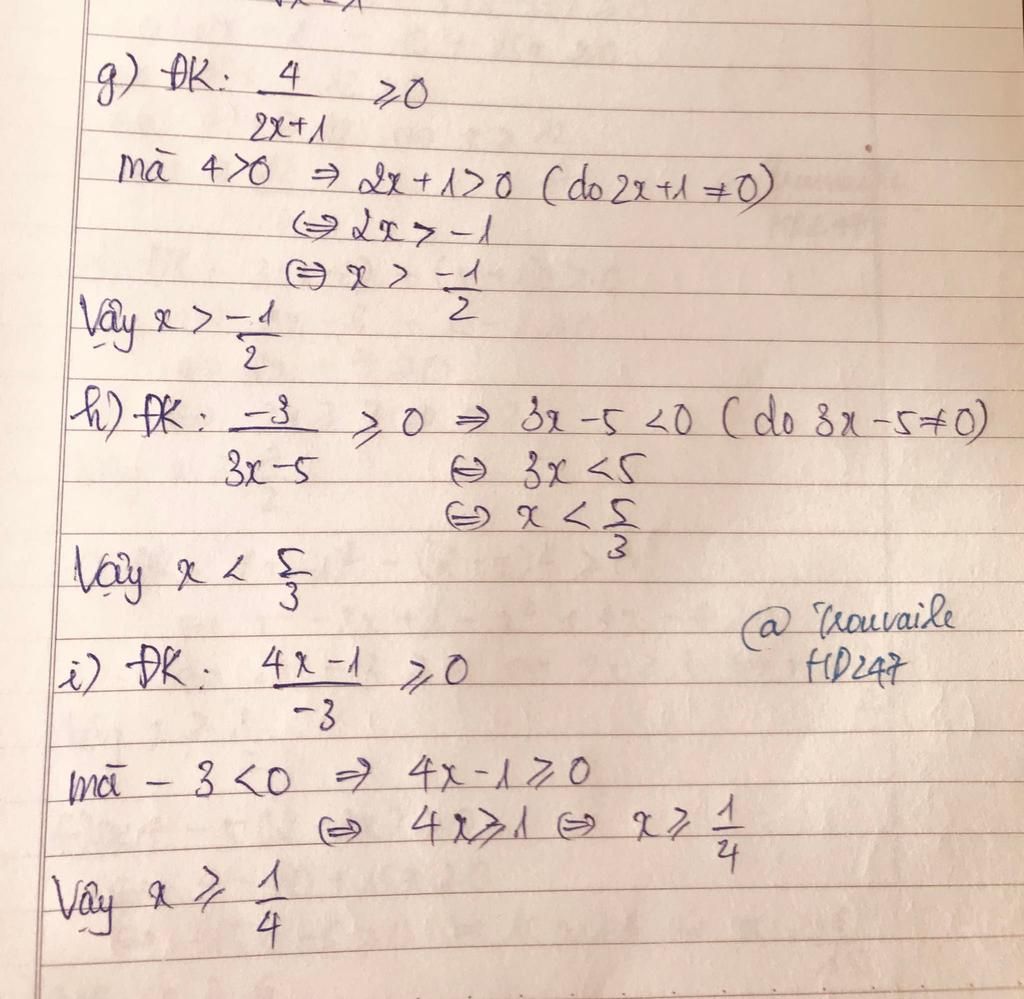 g) ĐK: 4/(2x+1) ⩾0
mà 4>0 ⇒ 2x+1>0 (do 2x+1≠0)
⇔ 2x > -1
⇔ x > -1/2
Vậy x > -1/2
h) ĐK: -3/(3x-5) ⩾ 0 ⇒ 3x-5<0 (do 3x-5≠0)
⇔ 3x<5
⇔ x < 5/3
Vậy x < 5/3
@ Trouvaille
HD247
i) ĐK: (4x-1)/-3 ⩾0
mà -3<0 ⇒ 4x-1⩾0
⇔ 4x⩾1 ⇔ x⩾ 1/4
Vậy x ⩾ 1/4